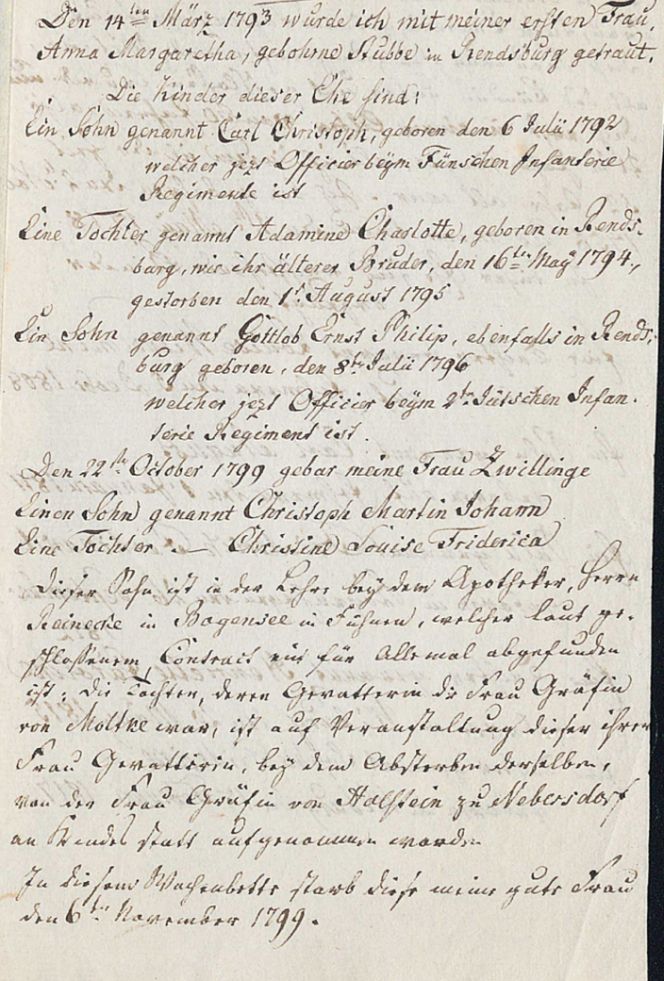 Den 14ten März 1793 wurde ich mit meiner ersten Frau,
Anna Margaretha, gebohrne Stubbe in Rendsburg getraut.
Die Kinder dieser Ehe sind:
Ein Sohn genannt Carl Christoph, geboren den 6 Julii 1792
welcher jezt Officier beym Fünschen Infanterie
Regimente ist
Eine Tochter genannt Adamine Charlotte, geboren in Rends-
burg, wie ihr älterer Bruder, den 16ten May 1794,
gestorben den 1st. August 1795
Ein Sohn genannt Gottlob Ernst Philip, ebenfalls in Rends-
burg geboren, den 8ten Julii 1796
welcher jezt Officier beym 2ten Jütschen Infan-
terie Regiment ist.
Den 22ten October 1799 gebar meine Frau Zwillinge
Einen Sohn genannt Christoph Martin Johann
Eine Tochter — Christine Louise Friderica
Dieser Sohn ist in der Lehre bey dem Apotheker, Herrn
Reinecke in Bogensee in Fühnen, welcher laut ge-
schloßenem Contract ein für Allemal abgefunden
ist; die Tochter, deren Gevatterin die Frau Gräfin
von Moltke war, ist auf Veranstaltung dieser ihrer
Frau Gevatterin, bey dem Absterben derselben,
von der Frau Gräfin von Holstein zu Nebersdorf
an Kindes statt aufgenommen worden
In diesem Wochenbette starb diese meine gute Frau
den 6ten November 1799.